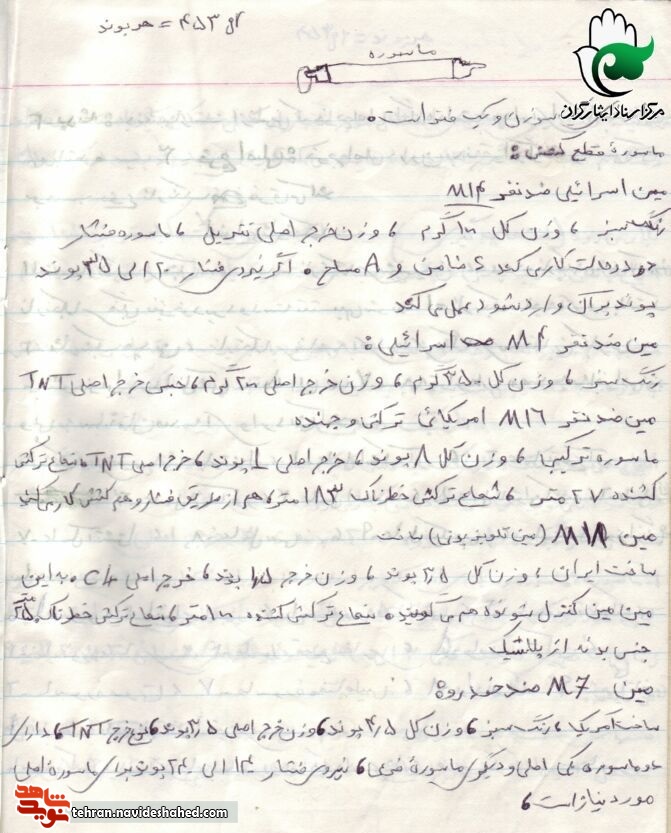 هر پوند = ۴۵۳ gr
ماسوره
مرکز اسناد ایثارگران
سوزن و یک فنر است.
ماسورهٔ مقطع کششی:
مین اسرائیلی ضد نفر M14
رنگ سبز، وزن کل ۱۰۰ گرم، وزن خرج اصلی تتریل، ماسوره فشار
در دو حالت کار می‌کند S ضامن و A مسلح. اگر نیروی فشار ۲۰ الی ۳۵ پوند
پوند براک وارد شود عمل می‌کند
مین ضد نفر M4 اسرائیلی:
رنگ سبز، وزن کل ۳۵۰ گرم، وزن خرج اصلی ۲۰۰ گرم، جنس خرج اصلی TNT
مین ضد نفر M16 امریکائی ترکشی و جهنده
ماسوره ترکیبی، وزن کل ۸ پوند، خرج اصلی 1 پوند، خرج اصلی TNT، شعاع ترکش
کشنده ۲۷ متر، شعاع ترکش خطرناک ۱۸۳ متر، هم از طریق فشار و هم کشش کار می‌کند
مین M18 (مین تلویزیونی) ساخت
ساخت ایران، وزن کل ۳٫۵ پوند، وزن خرج ۱٫۵ پوند، خرج اصلی C4. به این
مین مین کنترل شونده هم می‌گویند. شعاع ترکش کشنده ۱۰۰ متر، شعاع ترکش خطرناک ۲۵۰ متر
جنس بدنه از پلاستیک
مین M7 ضد خودرو:
ساخت آمریکا، رنگ سبز، وزن کل ۴٫۵ پوند، وزن خرج اصلی ۳٫۵ پوند، نوع خرج TNT، دارای
دو ماسوره یکی اصلی و دیگری ماسورهٔ فرعی، نیروی فشار ۱۴۰ الی ۲۴۰ پوند برای ماسورهٔ اصلی
مورد نیاز است،
نوید شاهد
tehran.navideshahed.com